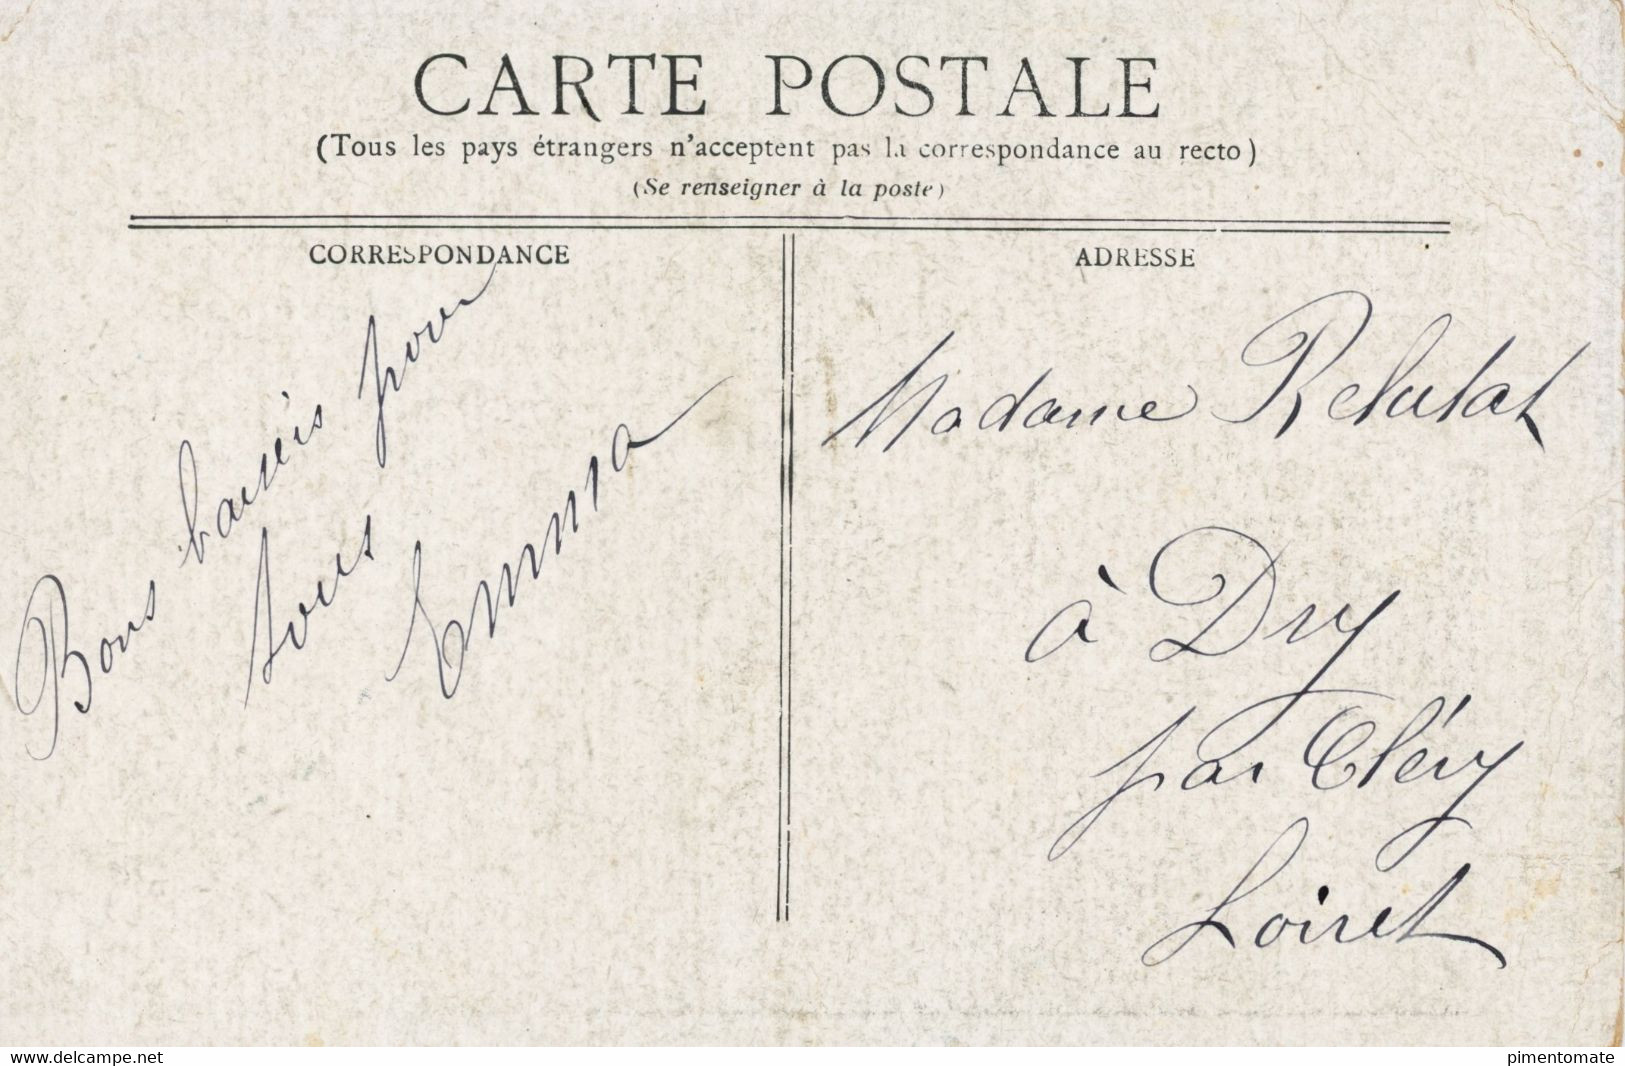 CARTE POSTALE
(Tous les pays étrangers n'acceptent pas la correspondance au recto)
(Se renseigner à la poste)
CORRESPONDANCE
Bons baiseis pour
tous
Emma
ADRESSE
Madame Relutat
à Dry
par Cléry
Loiret
www.delcampe.net
pimentomate